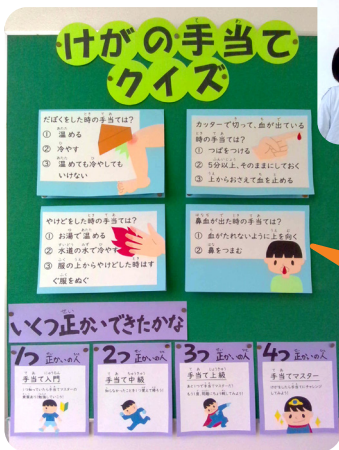 けがの手当て
クイズ
だぼくをした時の手当ては?
① 温める
② 冷やす
③ 温めても冷やしても
いけない
カッターで切って、血が出ている
時の手当ては?
① つばをつける
② 5分以上、そのままにしておく
③ 上からおさえて血を止める
やけどをした時の手当ては?
① お湯で温める
② 水道の水で冷やす
③ 服の上からやけどした時はす
ぐ服をぬぐ
鼻血が出た時の手当ては?
① 血がたれないように上を向く
② 鼻をつまむ
いくつ正かいできたかな
1つ 正かいの人
手当て入門
2つ 正かいの人
手当て中級
3つ 正かいの人
手当て上級
4つ 正かいの人
手当てマスター